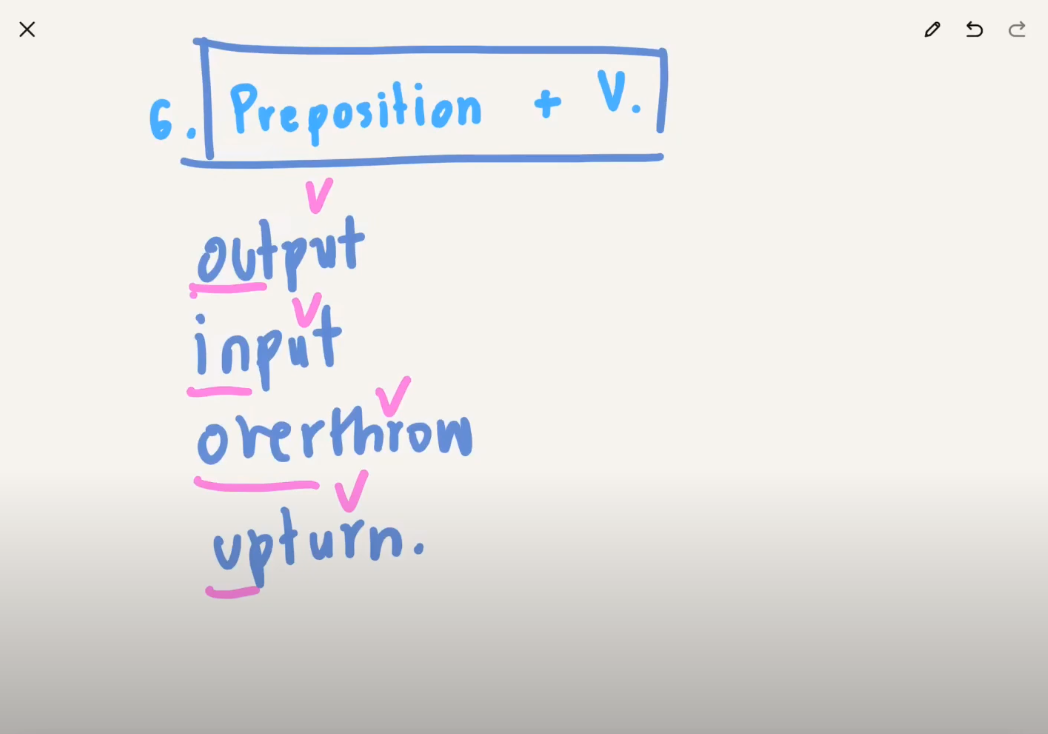 6. Preposition + V.
V
output
V
input
V
overthrow
V
upturn.